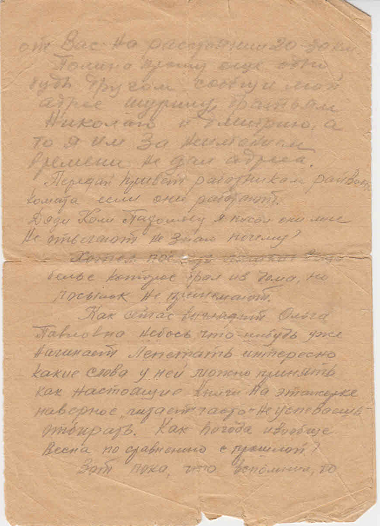 от Вас на расстоянии 20-30 км.
Полина прошу еще одно
будь другом, сообщи мой
адрес шурину, братьям
Николаю и Дмитрию, а
то я им за неимением
времени не дал адреса.
Передай привет работникам
если они работают.
Дяде Коле я писал он мне
не отвечает не знаю почему?
Хотел
белье которое брал из дома, но
посылок не принимают.
Как сейчас выглядит Ольга
Павловна небось что-нибудь уже
начинает лепетать интересно
какие слова у ней можно принять
как настоящие. Книги на этажерке
наверное часто не успеваешь
отбирать. Как погода вообще
весна по сравнению с прошлой?
Вот пока, что вспомнил, то